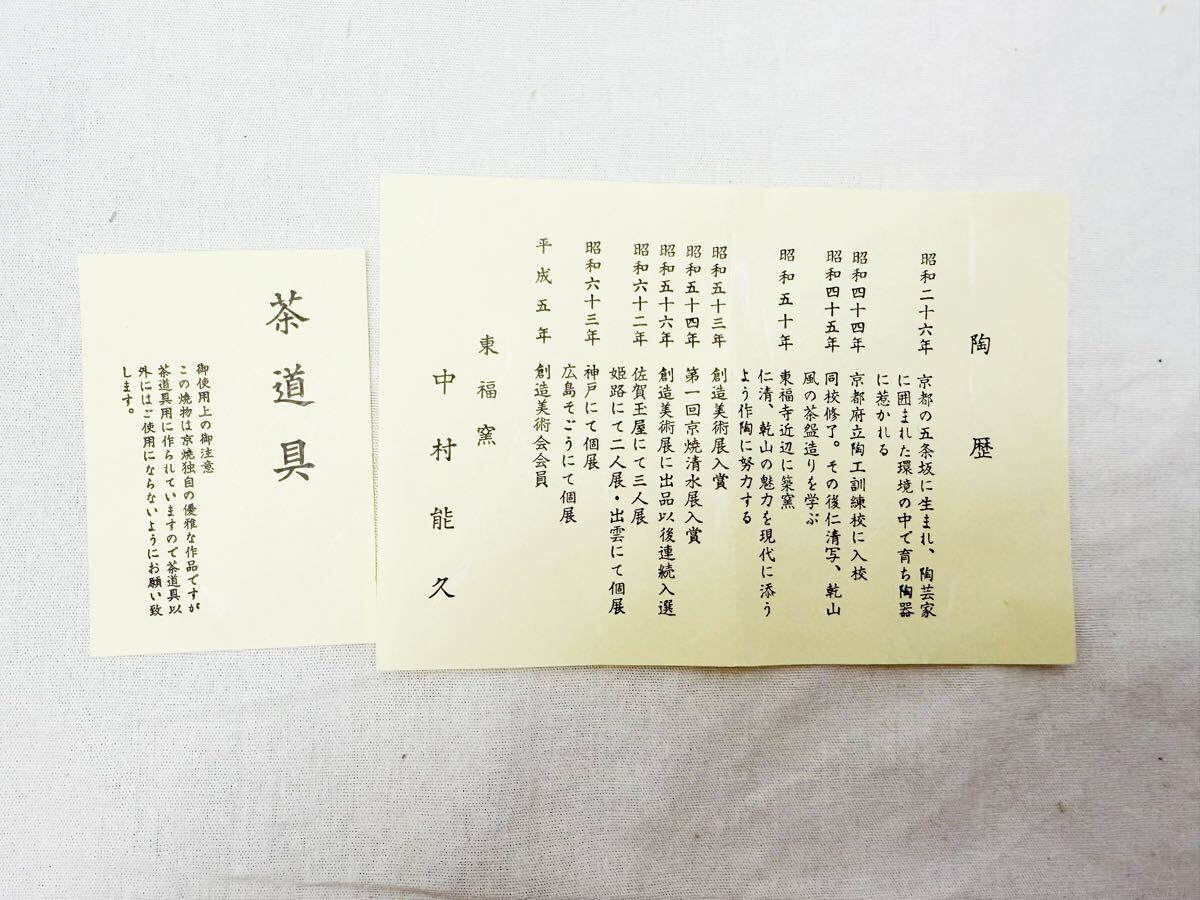 陶歴
昭和二十六年 京都の五条坂に生まれ、陶芸家
に囲まれた環境の中で育ち陶器
に惹かれる
昭和四十四年 京都府立陶工訓練校に入校
昭和四十五年 同校修了。その後仁清写、乾山
風の茶盌造りを学ぶ
昭和五十年 東福寺近辺に築窯
仁清、乾山の魅力を現代に添う
よう作陶に努力する
昭和五十三年 創造美術展入賞
昭和五十四年 第一回京焼清水展入賞
昭和五十六年 創造美術展に出品以後連続入選
昭和六十二年 佐賀玉屋にて三人展
姫路にて二人展・出雲にて個展
昭和六十三年 神戸にて個展
広島そごうにて個展
平成五年 創造美術会会員
東福窯
中村能久
茶道具
御使用上の御注意
この焼物は京焼独自の優雅な作品ですが
茶道具用に作られていますので茶道具以
外にはご使用にならないようにお願い致
します。